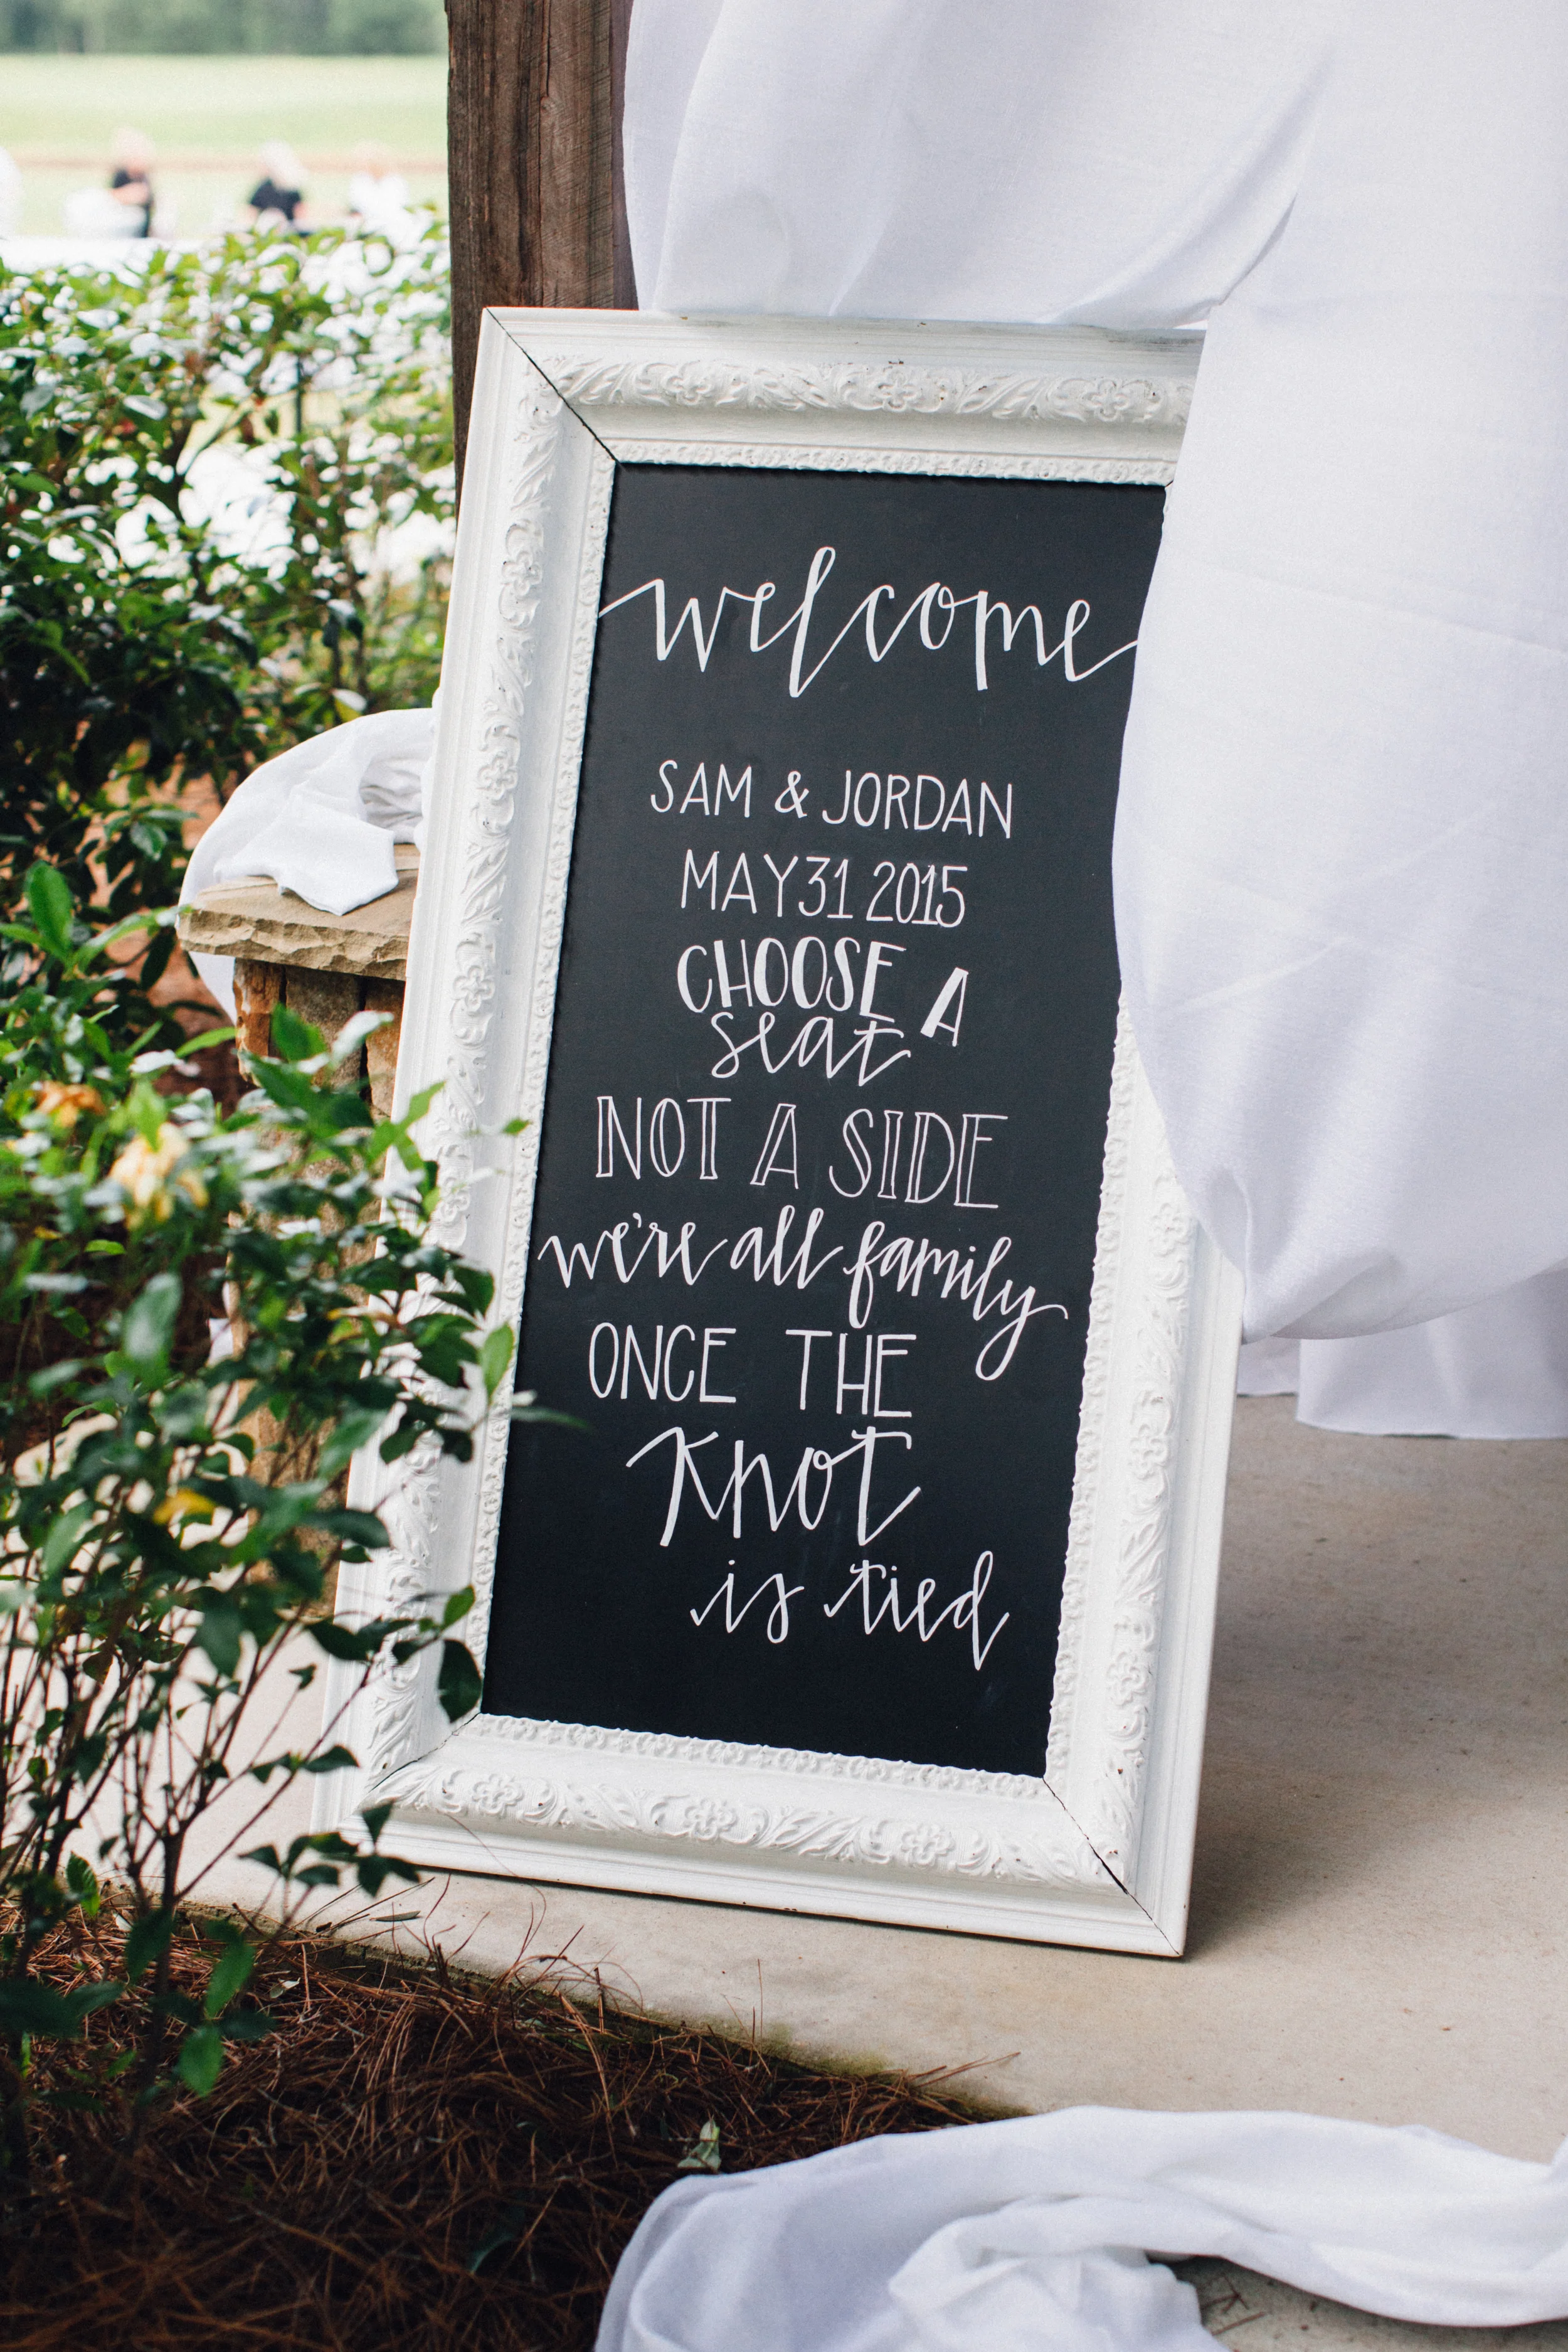 welcome
SAM & JORDAN
MAY 31 2015
CHOOSE A
seat
NOT A SIDE
we're all family
ONCE THE
Knot
is tied